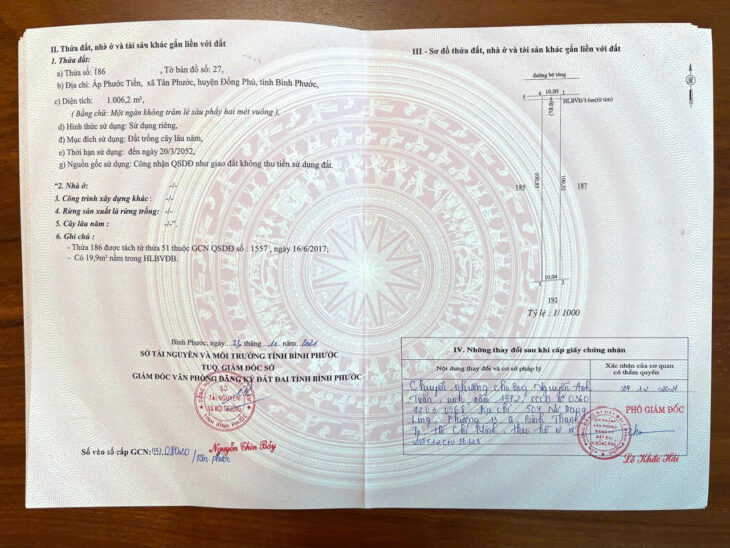 II. Thửa đất, nhà ở và tài sản khác gắn liền với đất
1. Thửa đất:
a) Thửa số: 186 , Tờ bản đồ số: 27,
b) Địa chỉ: Ấp Phước Tiến, xã Tân Phước, huyện Đồng Phú, tỉnh Bình Phước,
c) Diện tích: 1.006,2 m²,
( Bằng chữ: Một ngàn không trăm lẻ sáu phẩy hai mét vuông )
d) Hình thức sử dụng: Sử dụng riêng,
đ) Mục đích sử dụng: Đất trồng cây lâu năm,
e) Thời hạn sử dụng: đến ngày 20/3/2052,
g) Nguồn gốc sử dụng: Công nhận QSDĐ như giao đất không thu tiền sử dụng đất.
"2. Nhà ở: -/-
3. Công trình xây dựng khác : -/-
4. Rừng sản xuất là rừng trồng: -/-
5. Cây lâu năm : -/-"
6. Ghi chú:
- Thửa 186 được tách từ thửa 51 thuộc GCN QSDĐ số : 1557 , ngày 16/6/2017;
- Có 19,9m² nằm trong HLBVĐB.
Bình Phước, ngày 23 tháng 11 năm 2021
SỞ TÀI NGUYÊN VÀ MÔI TRƯỜNG TỈNH BÌNH PHƯỚC
TUQ. GIÁM ĐỐC SỞ
GIÁM ĐỐC VĂN PHÒNG ĐĂNG KÝ ĐẤT ĐAI TỈNH BÌNH PHƯỚC
SỞ
TÀI NGUYÊN
VÀ MÔI TRƯỜNG
TỈNH BÌNH PHƯỚC
Nguyễn Thìn Bảy
Số vào sổ cấp GCN:
/Tân phước
III - Sơ đồ thửa đất, nhà ở và tài sản khác gắn liền với đất
đường bê tông
4 4 10,00 1
HLBVĐ3.6m(từ tâm)
(19,9)
185
100,85
100,32
187
10,04
3 2
192
Tỷ lệ : 1/ 1000
IV. Những thay đổi sau khi cấp giấy chứng nhận
Nội dung thay đổi và cơ sở pháp lý
Xác nhận của cơ quan có thẩm quyền
Chuyển nhượng cho ông Nguyễn Anh
Tuấn sinh năm 1972, CCCD số 0360
Địa chỉ:
Long, Phường 13, Q. Bình Thạnh
Tp Hồ Chí Minh, theo hồ sơ
PHÓ GIÁM ĐỐC
Lê Khắc Hải